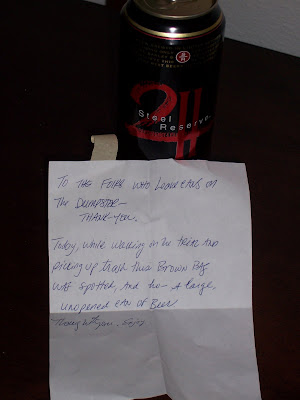 211
Steel
Reserve
TO THE FOLKS WHO LEAVE CANS ON
The DUMPSTER—
THANK YOU.
Today, while walking in the
picking up trash this Brown Bag
was spotted, And lo- A large,
unopened CAN of Beer